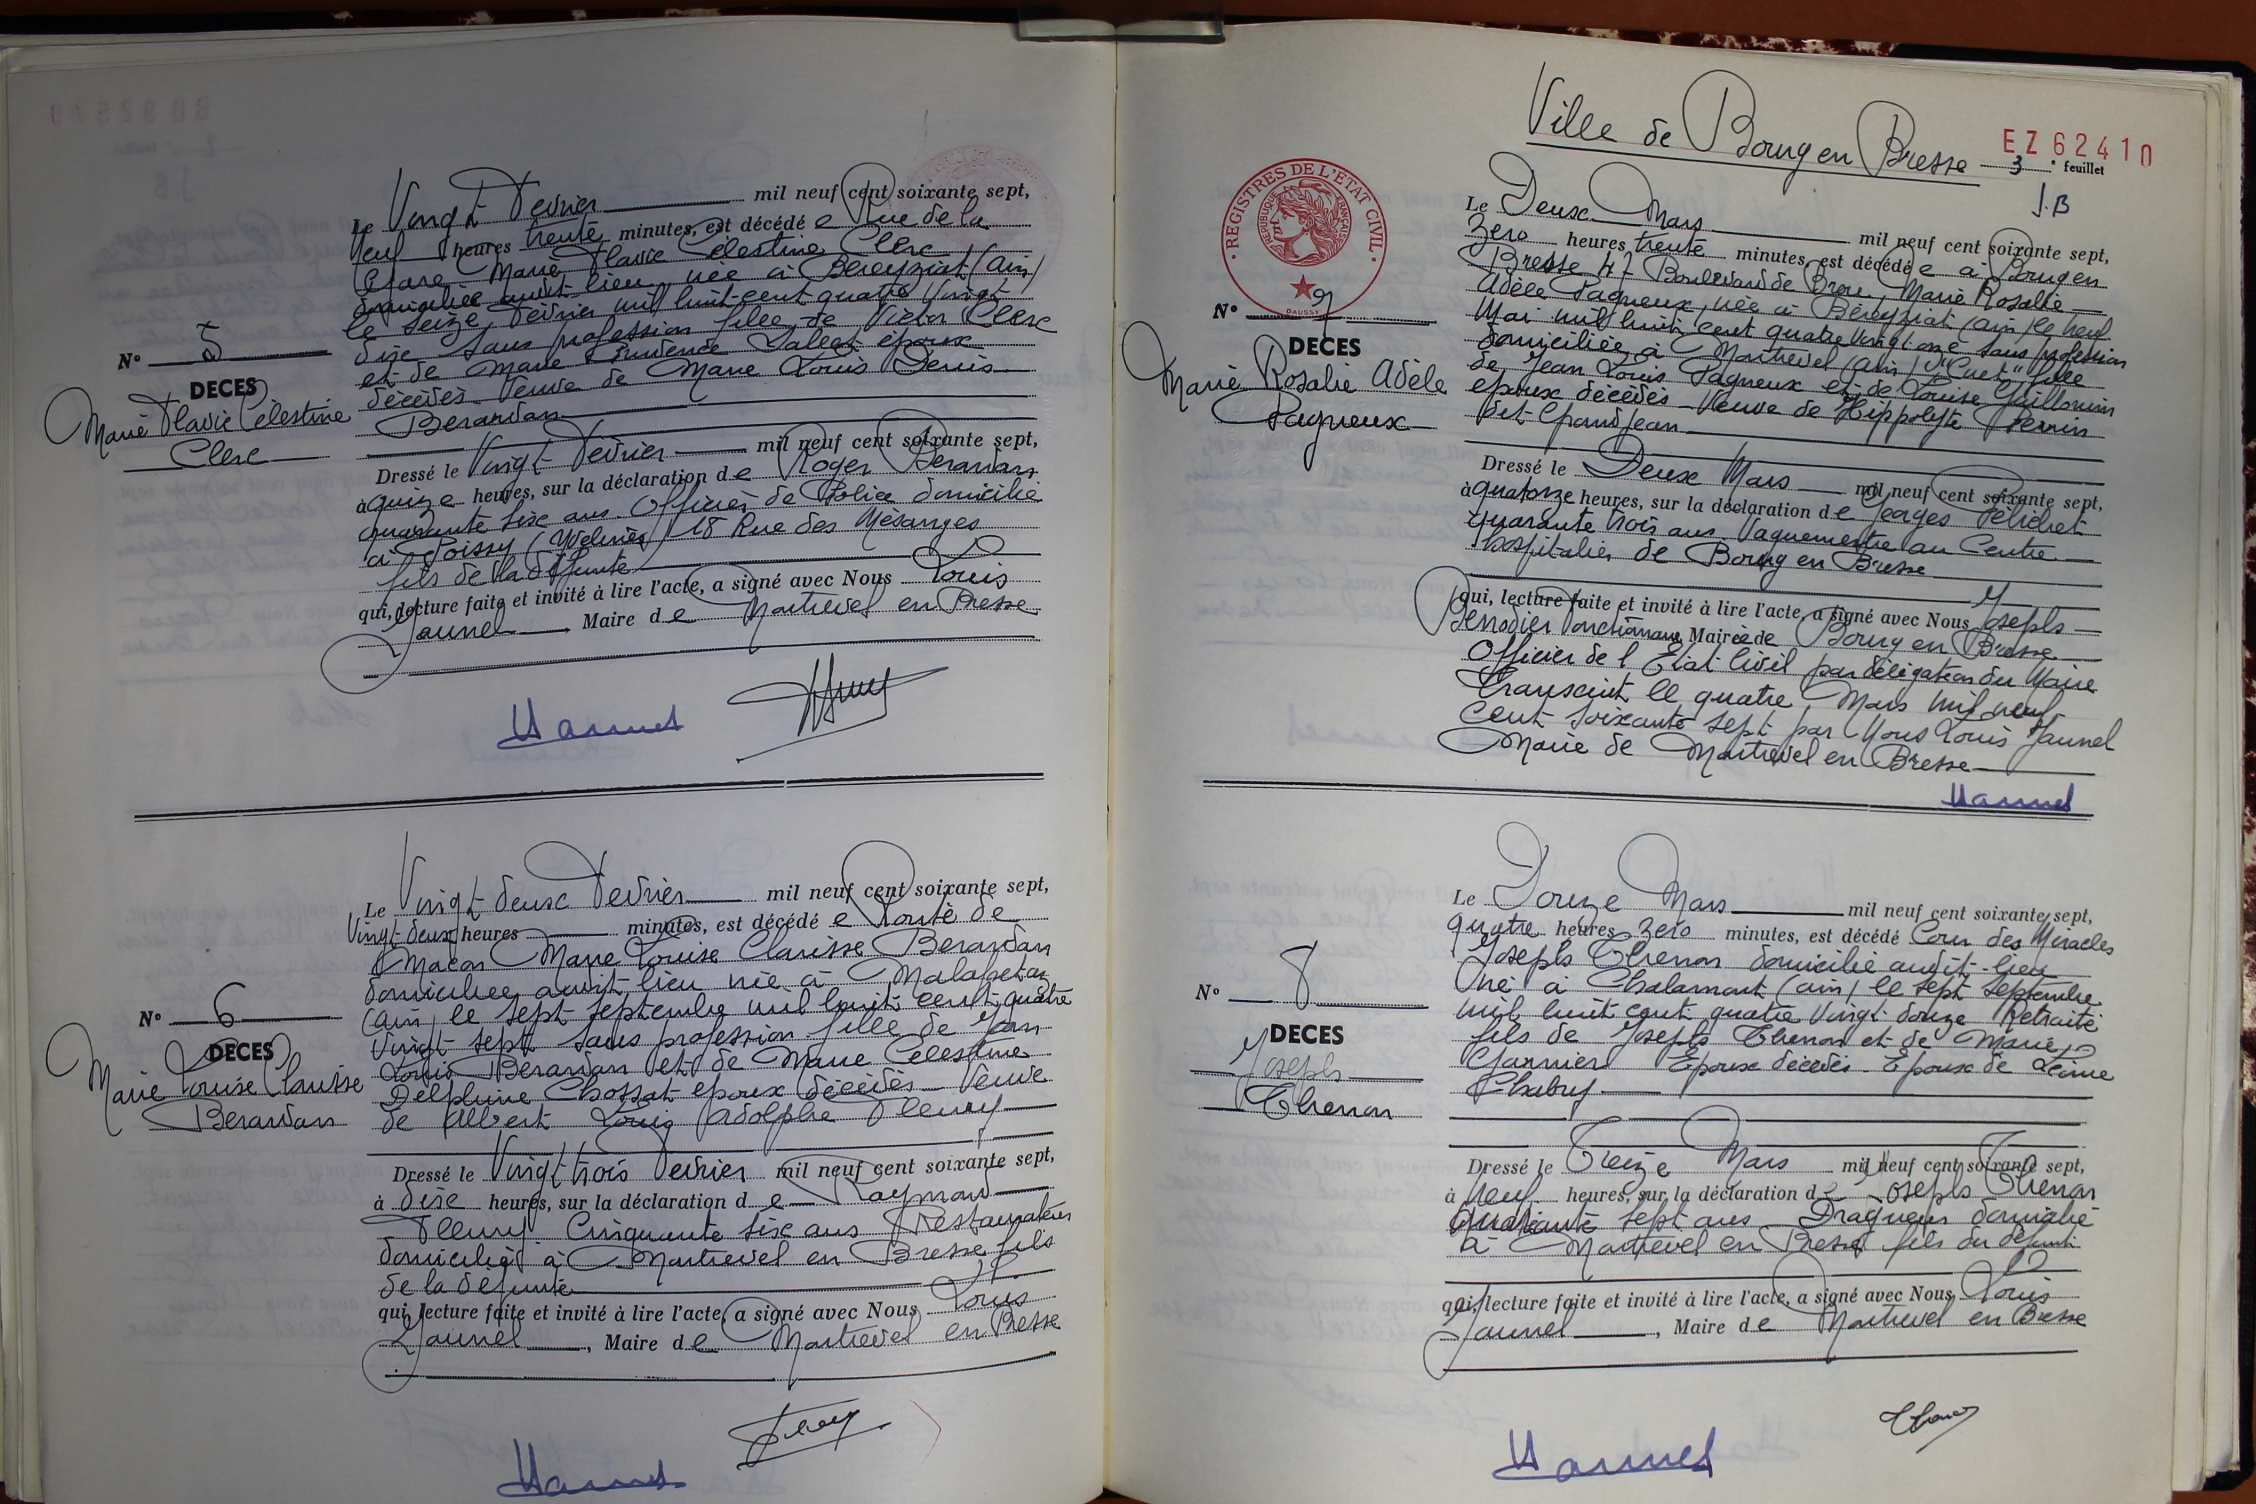 N° 5
DECES
Marie Flavie Célestine
Clerc
Le Vingt Fevrier mil neuf cent soixante sept,
Neuf heures trente minutes, est décédé e Rue de la
Gare Marie Flavie Célestine Clerc
domiciliée audit lieu née à Béréyziat (ain)
le seize Fevrier mil huit cent quatre Vingt
dix sans profession fille de Victor Clerc
et de Marie Prudence Sallet époux
décédés Veuve de Marie Louis Denis
Berardan
Dressé le Vingt Fevrier mil neuf cent soixante sept,
à quize heures, sur la déclaration de Roger Berardan
quarante six ans Officier de Police domicilié
à Poissy (Yvelines) 18 Rue des Mésanges
fils de la défunte
qui, lecture faite et invité à lire l'acte, a signé avec Nous Louis
Jaunel, Maire de Montrevel en Bresse
N° 6
DECES
Marie Louise Clarisse
Berardan
Le Vingt deux Fevrier mil neuf cent soixante sept,
Vingt deux heures minutes, est décédé e Route de
Macon Marie Louise Clarisse Berardan
domiciliée audit lieu née à Malafretaz
(ain) le sept septembre mil huit cent quatre
Vingt sept sans profession fille de Jean
Louis Berardan et de Marie Célestine
Delphine Chossat époux décédés Veuve
de Albert Louis Adolphe Fleury
Dressé le Vingt trois Fevrier mil neuf cent soixante sept,
à dix heures, sur la déclaration de Raymond
Fleury Cinquante six ans Restaurateur
domicilié à Montrevel en Bresse fils
de la défunte
qui, lecture faite et invité à lire l'acte, a signé avec Nous Louis
Jaunel, Maire de Montrevel en Bresse
Ville de Bourg en Bresse
EZ 62410
3 e feuillet
J.B
REGISTRES DE L'ETAT CIVIL
REPUBLIQUE FRANÇAISE
DAUSSY
N° 7
DECES
Marie Rosalie Adèle
Pagneux
Le Deux Mars mil neuf cent soixante sept,
Zero heures trente minutes, est décédé e à Bourg en
Bresse 47 Boulevard de Brou, Marie Rosalie
Adèle Pagneux, née à Béréyziat (ain) le neuf
Mai mil huit cent quatre Vingt onze sans profession
domiciliée à Montrevel (ain) "Cuet" fille
de Jean Louis Pagneux et de Louise Guillermin
époux décédés Veuve de Hippolyte Perrin
dit Grandjean
Dressé le Deux Mars mil neuf cent soixante sept,
à quatorze heures, sur la déclaration de Georges Pélichet
quarante trois ans Vaguemestre au Centre
hospitalier de Bourg en Bresse
qui, lecture faite et invité à lire l'acte, a signé avec Nous Joseph
Benodier Fonctionnaire Mairie de Bourg en Bresse
Officier de l'Etat Civil par délégation du Maire
Transcrit le quatre Mars mil neuf
cent soixante sept par Nous Louis Jaunel
Maire de Montrevel en Bresse
N° 8
DECES
Joseph
Thenon
Le Douze Mars mil neuf cent soixante sept,
quatre heures zero minutes, est décédé Cour des Miracles
Joseph Thenon domicilié audit lieu
Né à Chalamont (ain) le sept septembre
mil huit cent quatre Vingt douze Retraité
fils de Joseph Thenon et de Marie
Garnier Epoux décédés - Epoux de Leonie
Chabry
Dressé le Treize Mars mil neuf cent soixante sept,
à Neuf heures, sur la déclaration de Joseph Thenon
Quarante sept ans Dragueur domicilié
à Montrevel en Bresse fils du défunt
qui, lecture faite et invité à lire l'acte, a signé avec Nous Louis
Jaunel, Maire de Montrevel en Bresse